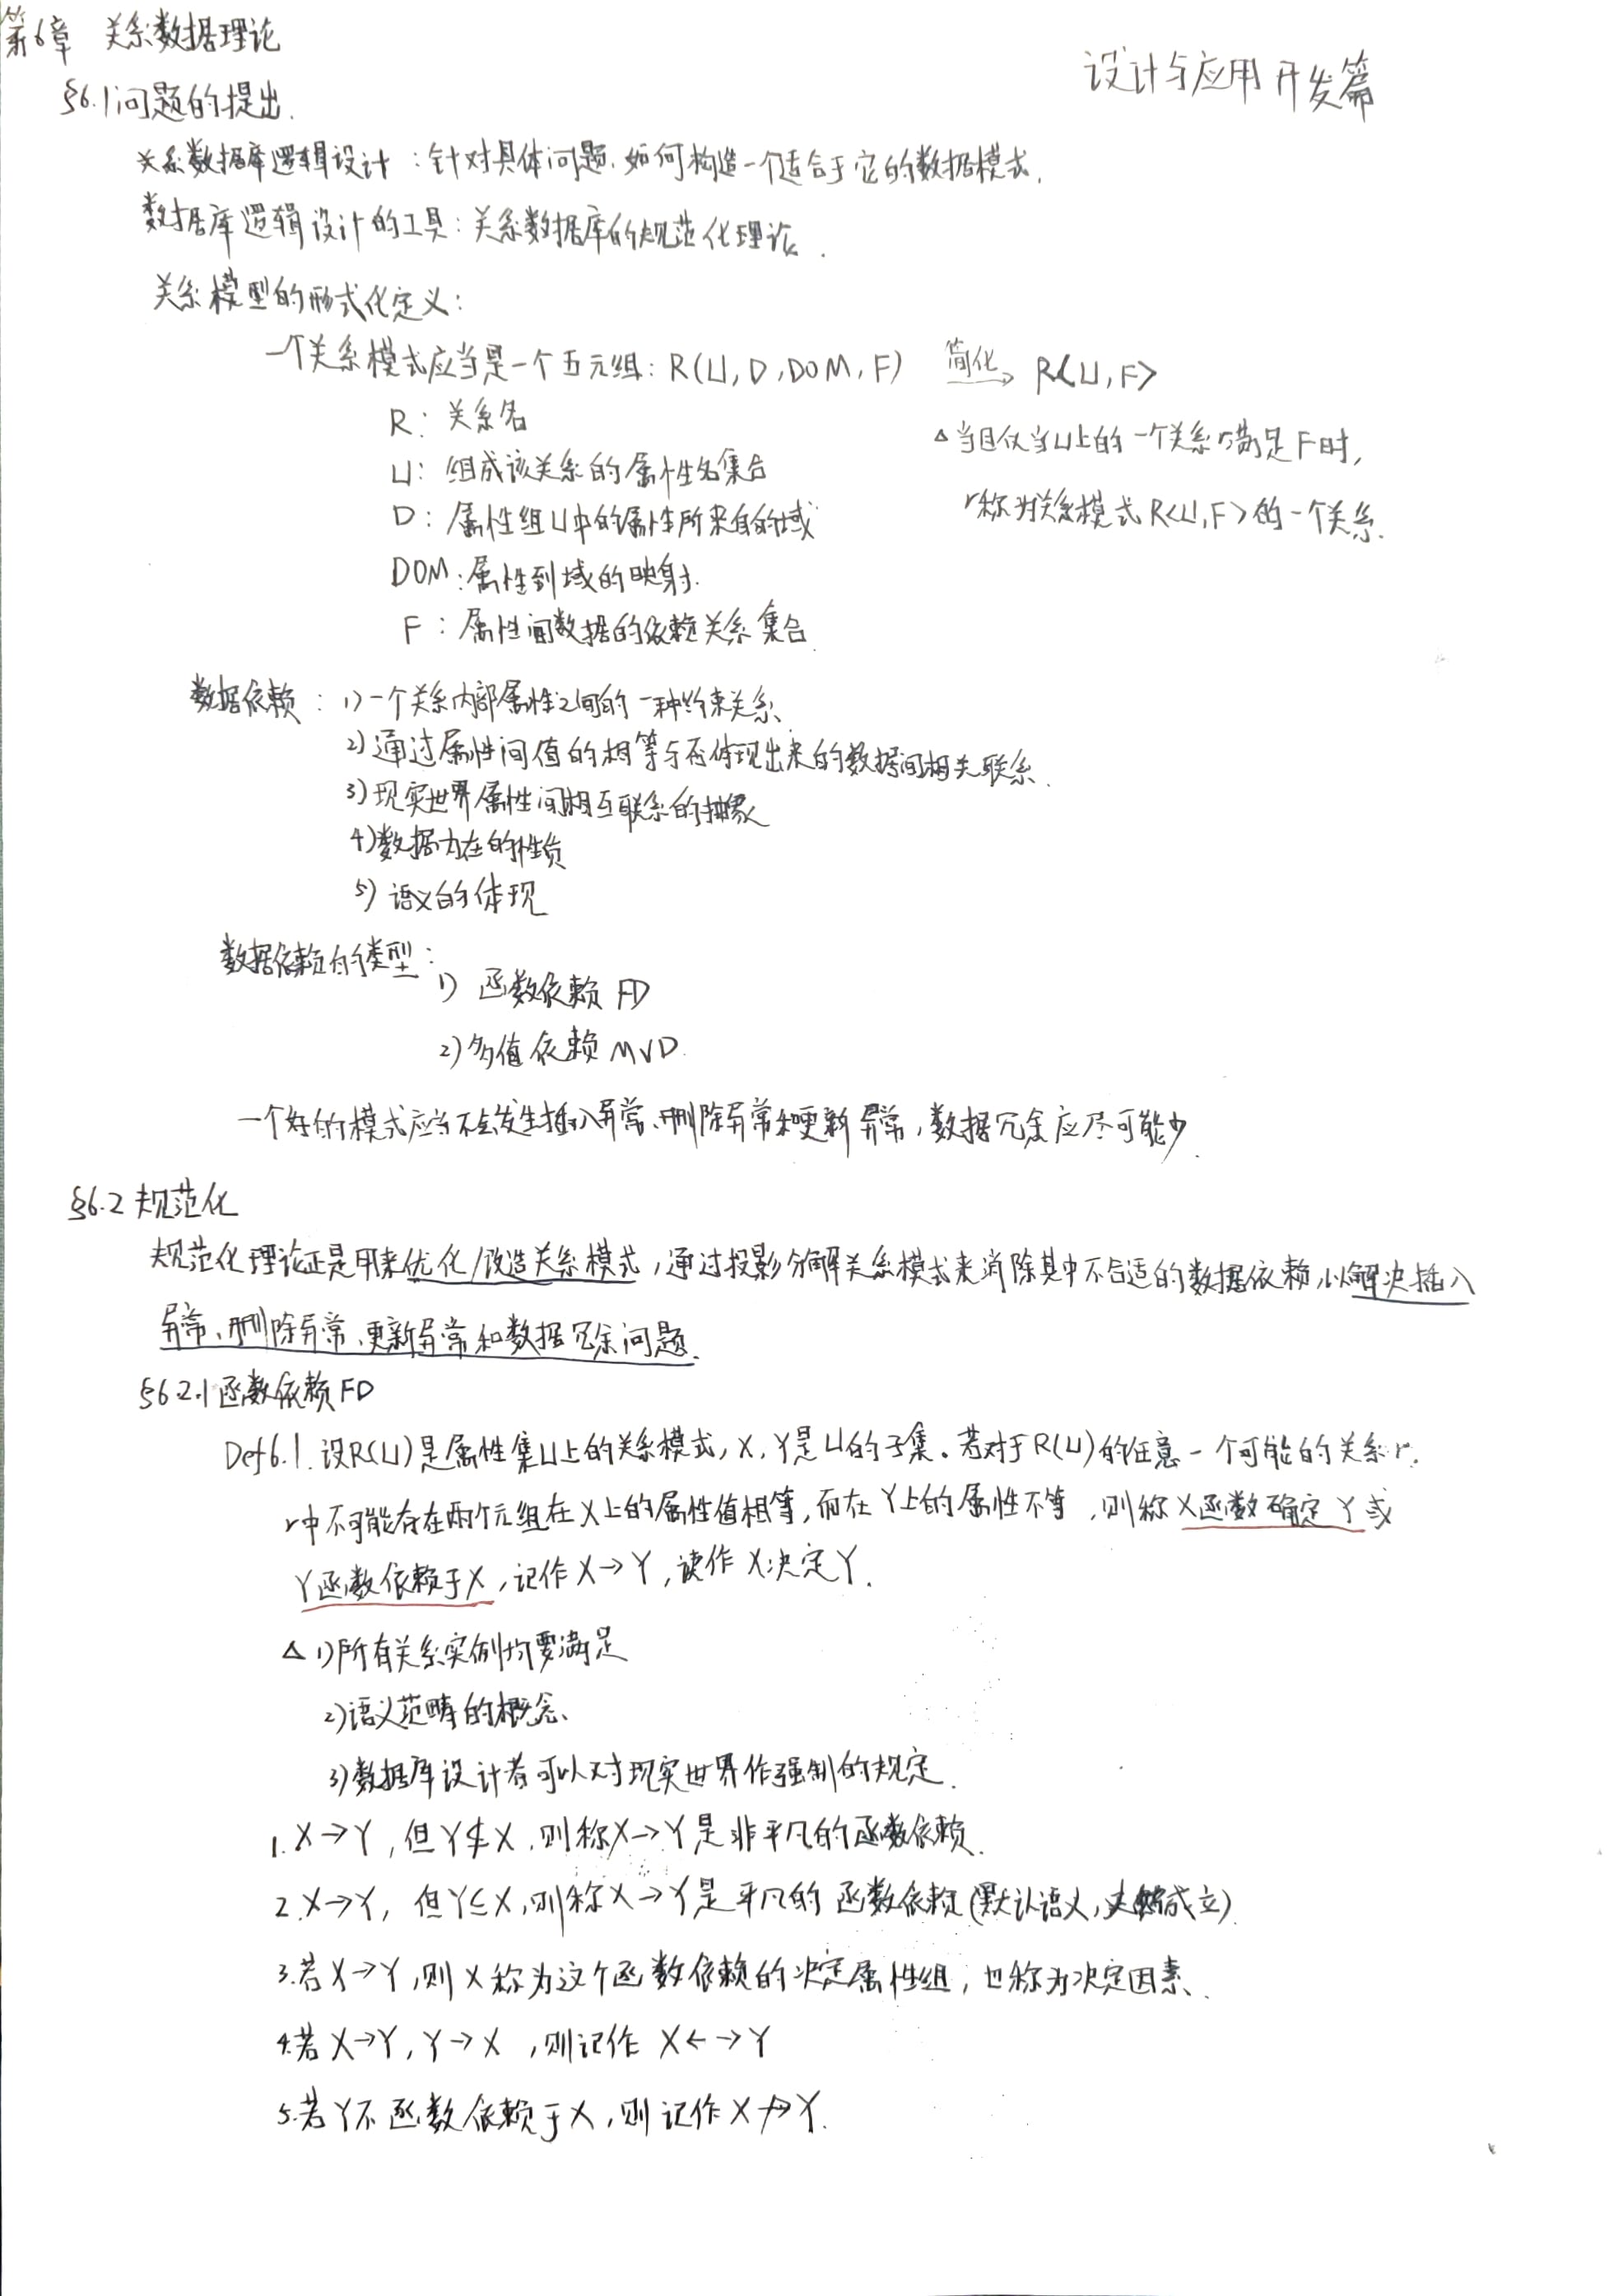 第6章 关系数据理论
设计与应用开发篇
§6.1 问题的提出.
关系数据库逻辑设计：针对具体问题,如何构造一个适合于它的数据模式.
数据库逻辑设计的工具：关系数据库的规范化理论.
关系模型的形式化定义：
一个关系模式应当是一个五元组：R(U,D,DOM,F) 简化→ R<U,F>
R：关系名
U：组成该关系的属性名集合
D：属性组U中的属性所来自的域
DOM：属性到域的映射.
F：属性间数据的依赖关系集合.
△当且仅当U上的一个关系r满足F时,
r称为关系模式R<U,F>的一个关系.
数据依赖：1)一个关系内部属性之间的一种约束关系.
2)通过属性间值的相等与否体现出来的数据间相关联系.
3)现实世界属性间相互联系的抽象
4)数据内在的性质
5)语义的体现
数据依赖的类型：
1) 函数依赖 FD
2)多值依赖 MVD.
一个好的模式应当不会发生插入异常、删除异常和更新异常,数据冗余应尽可能少.
§6.2 规范化
规范化理论正是用来优化/改造关系模式,通过投影分解关系模式来消除其中不合适的数据依赖,以解决插入
异常、删除异常、更新异常和数据冗余问题.
§6.2.1 函数依赖FD
Def6.1.设R(U)是属性集U上的关系模式,X,Y是U的子集。若对于R(U)的任意一个可能的关系r.
r中不可能存在两个元组在X上的属性值相等,而在Y上的属性不等,则称X函数确定Y或
Y函数依赖于X,记作X→Y,读作X决定Y.
△ 1)所有关系实例均要满足
2)语义范畴的概念、
3)数据库设计者可以对现实世界作强制的规定.
1.X→Y,但Y⊄X,则称X→Y是非平凡的函数依赖.
2.X→Y,但Y⊆X,则称X→Y是平凡的函数依赖(默认语义,成立).
3.若X→Y,则X称为这个函数依赖的决定属性组,也称为决定因素、.
4.若X→Y,Y→X,则记作 X←→Y
5.若Y不函数依赖于X,则记作X↛Y.